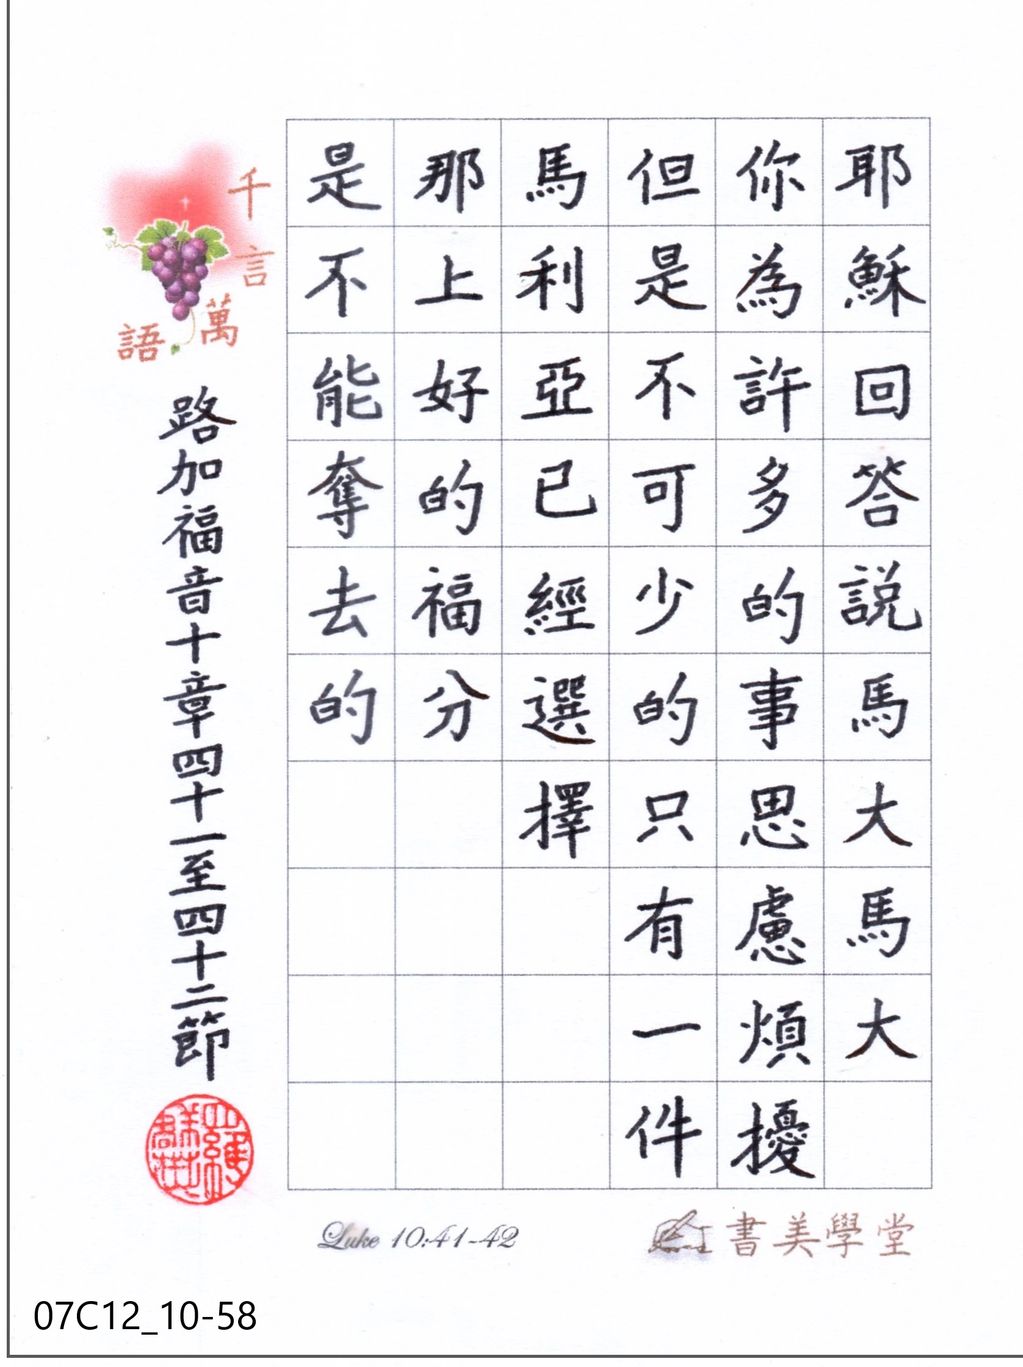 耶穌回答說馬大馬大
你為許多的事思慮煩擾
但是不可少的只有一件
馬利亞已經選擇
那上好的福分
是不能奪去的
千言萬語
路加福音十章四十一至四十二節
Luke 10:41-42
書美學堂
07C12_10-58